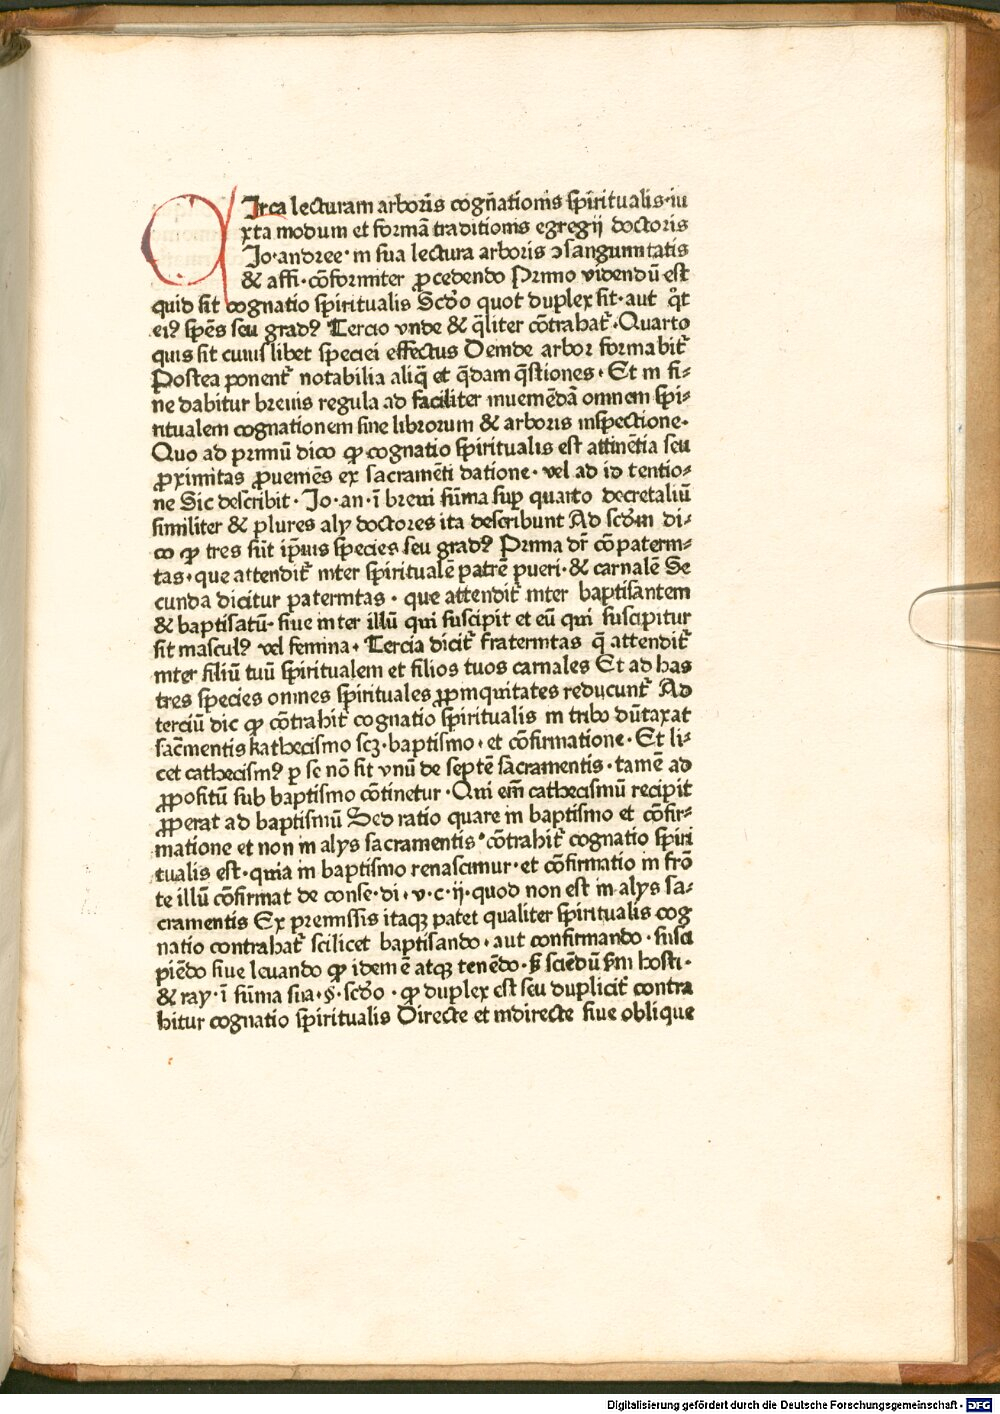 CIrca lecturam arboris cogñationis spiritualis·iu
xta modum et formã traditionis egregij doctoris
Jo·andree·in sua lectura arboris ↄsanguinitatis
& affi·cõformiter ꝓcedendo Primo videndū est
quid sit cognatio spiritualis Scďo quot duplex sit·aut q̊t
eiꝰ spẽs seu gradꝰ Tercio vnde & q̃liter cõtrahat᷑·Quarto
quis sit cuius libet speciei effectus Deinde arbor formabit᷑
Postea ponent᷑ notabilia aliq̃ et q̃dam q̃stiones· Et in fi⸗
ne dabitur breuis regula ad faciliter inueniẽdã omnem spi⸗
ritualem cognationem sine librorum & arboris inspectione·
Quo ad primū dico ꝙ cognatio spiritualis est attinẽtia seu
ꝓximitas ꝓueniẽs ex sacramẽti datione· vel ad id tentio⸗
ne Sic describit· Jo·an·ĩ breui sūma suꝑ quarto decretaliū
similiter & plures alij doctores ita describunt Ad scďm di⸗
co ꝙ tres sūt ip̃ius species seu gradꝰ Prima dr̃ cõpaterni⸗
tas·que attendit᷑ inter spiritualẽ patrẽ pueri·& carnalẽ Se
cunda dicitur paternitas · que attendit᷑ inter baptisantem
& baptisatū· siue inter illū qui suscipit et eū qui suscipitur
sit masculꝰ vel femina· Tercia dicit᷑ fraternitas q̃ attendit᷑
inter filiū tuū spiritualem et filios tuos carnales Et ad has
tres species omnes spirituales ꝓpinquitates reducunt᷑ Ad
terciū dic ꝙ cõtrahit᷑ cognatio spiritualis in tribꝰ dūtaxat
sac̃mentis kathecismo scꝫ·baptismo·et cõfirmatione·Et li⸗
cet cathecismꝰ ꝑ se nõ sit vnū de septẽ sacramentis·tamẽ ad
ꝓpositū sub baptismo cõtinetur·Qui em̃ cathecismū recipit
ꝓperat ad baptismū Sed ratio quare in baptismo et cõfir⸗
matione et non in alijs sacramentis·cõtrahit᷑ cognatio spiri
tualis est·quia in baptismo renascimur·et cõfirmatio in frõ
te illū cõfirmat de conse·di·v·c·ij·quod non est in alijs sa⸗
cramentis Ex premissis itaqꝫ patet qualiter spiritualis cog
natio contrahat᷑ scilicet baptisando·aut confirmando·susci
piẽdo siue leuando ꝙ idem ẽ atqꝫ tenẽdo·ꝭ sciẽdū ẜm hosti·
& ray·ĩ sūma sua·§·scďo·ꝙ duplex est seu duplicit᷑ contra
hitur cognatio spiritualis Directe et indirecte siue oblique
Digitalisierung gefördert durch die Deutsche Forschungsgemeinschaft - DFG